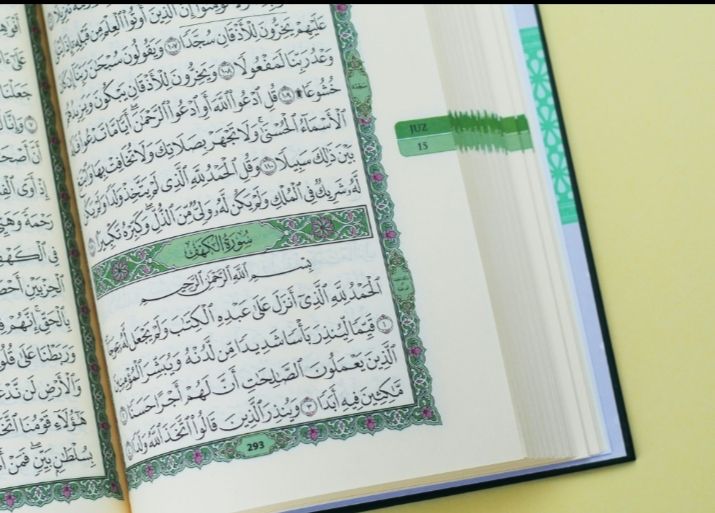 تؤمنوا إن الذين أوتوا العلم من قبله إذا
عليهم يخرون للأذقان سجدا ١٠٧ ويقولون سبحن ربنا إن كان
وعد ربنا لمفعولا ١٠٨ ويخرون للأذقان يبكون ويزيدهم
خشوعا ۩ ١٠٩ قل ادعوا الله أو ادعوا الرحمن أيا ما تدعوا فله
الأسماء الحسنى ولا تجهر بصلاتك ولا تخافت بها وابتغ
بين ذلك سبيلا ١١٠ وقل الحمد لله الذي لم يتخذ ولدا ولم يكن
له شريك في الملك ولم يكن له ولي من الذل وكبره تكبيرا
سورة الكهف
بسم الله الرحمن الرحيم
الحمد لله الذي أنزل على عبده الكتب ولم يجعل له عوجا
١ قيما لينذر بأسا شديدا من لدنه ويبشر المؤمنين
الذين يعملون الصلحت أن لهم أجرا حسنا ٢
مكثين فيه أبدا ٣ وينذر الذين قالوا اتخذ الله ولدا ٤
293
سجدة
JUZ
15
على
جعلنا
وإنا
أن
إذ أوى
رحمة
في
الحزبين
بالحق إنهم
وربطنا على
والأرض لن
هؤلاء قومنا
بسلطن بين فمن